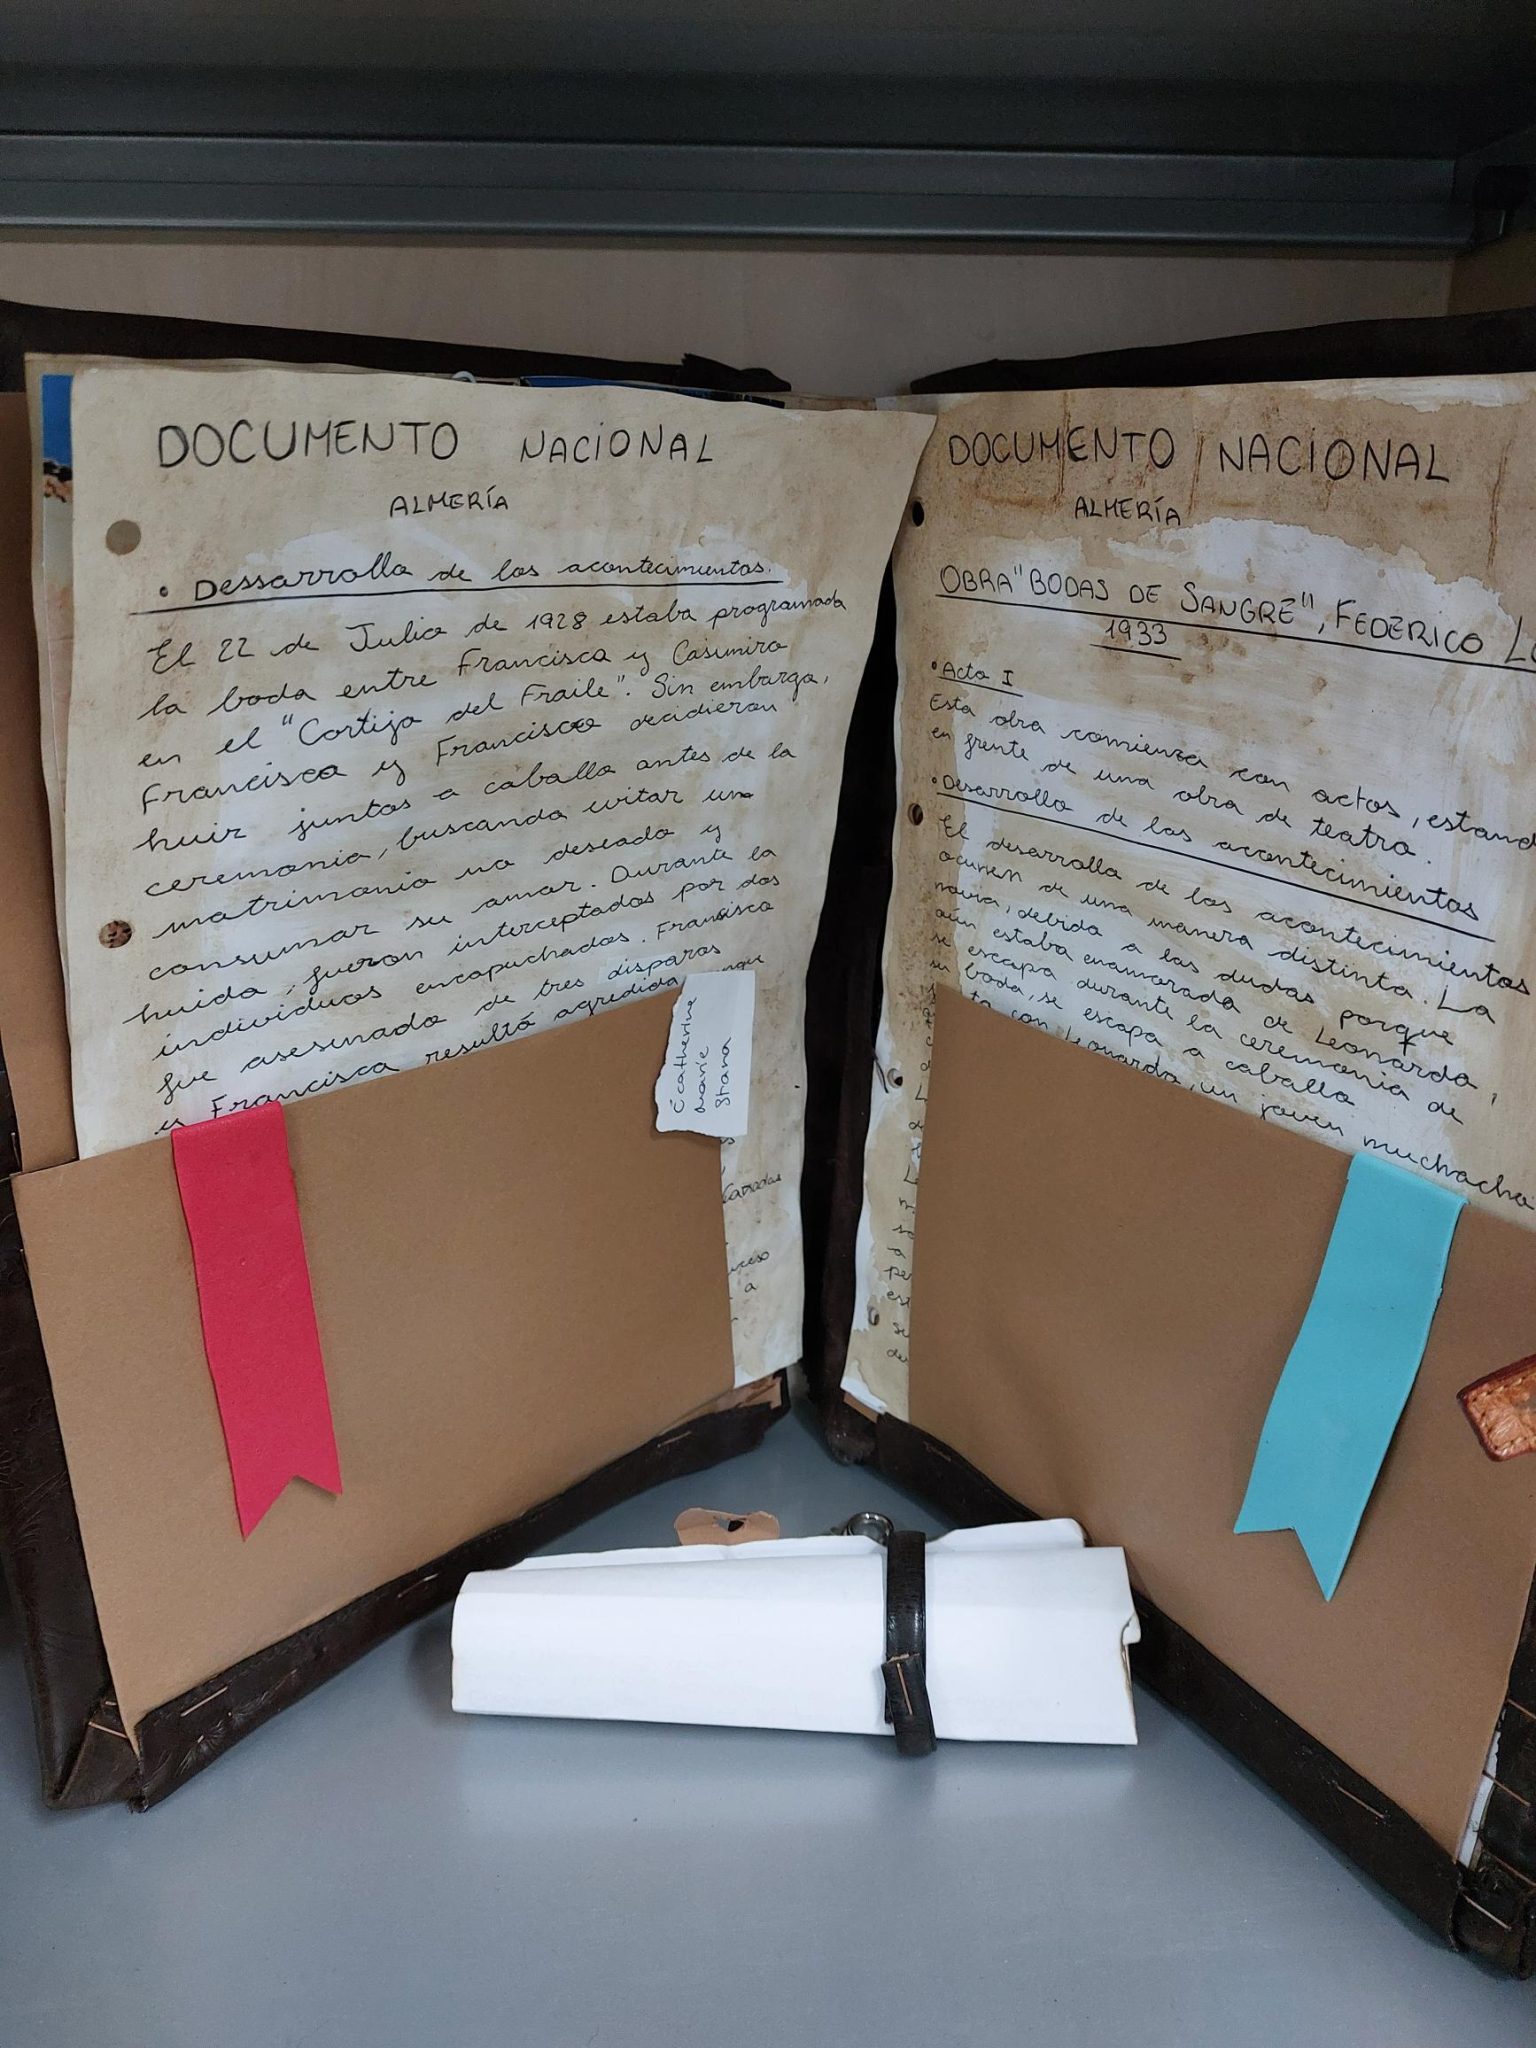 DOCUMENTO NACIONAL
ALMERÍA
• Dessarrollo de los acontecimientos.
El 22 de Julio de 1928 estaba programada
la boda entre Francisca y Casimiro
en el "Cortijo del Fraile". Sin embargo,
Francisca y Francisco decidieron
huir juntos a caballo antes de la
ceremonia, buscando evitar un
matrimonio no deseado y
consumar su amor. Durante la
huida, fueron interceptados por dos
individuos encapuchados. Francisco
fue asesinado de tres disparos
y Francisca resultó agredida
Écatherine
Marie
Stana
DOCUMENTO NACIONAL
ALMERÍA
OBRA "BODAS DE SANGRE", FEDERICO LO
1933
• Acto I
Esta obra comienza con actos, estand
en frente de una obra de teatro.
• Desarrollo de los acontecimientos
El desarrollo de los acontecimientos
ocurren de una manera distinta. La
novia, debido a las dudas porque
aún estaba enamorada de Leonardo,
se escapa durante la ceremonia de
su boda, se escapa a caballo
con Leonardo, un joven muchacho